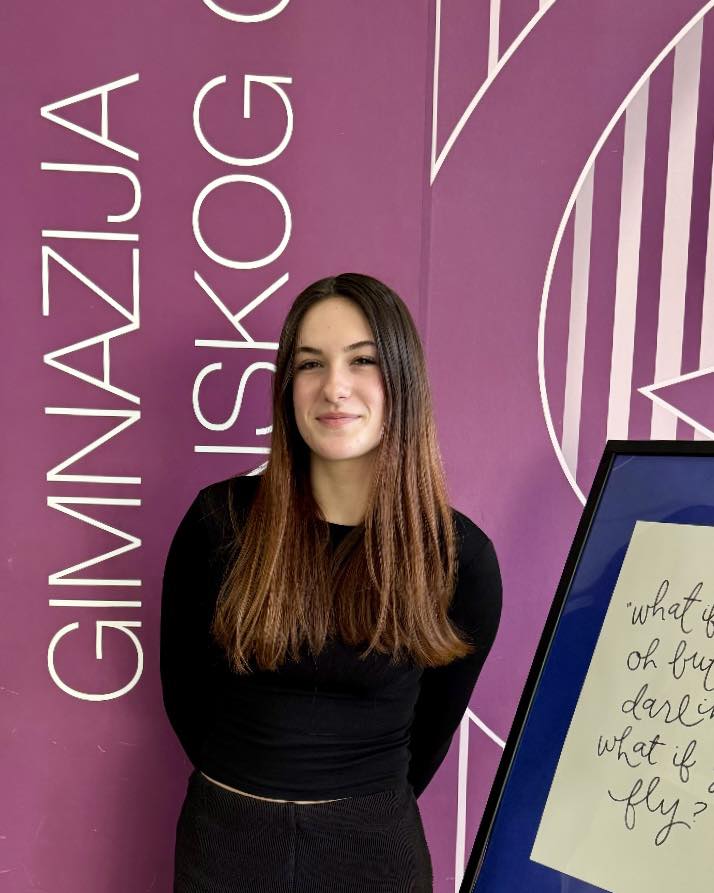 GIMNAZIJA
ISKOG
"what if
oh but
darlin
what if
fly?